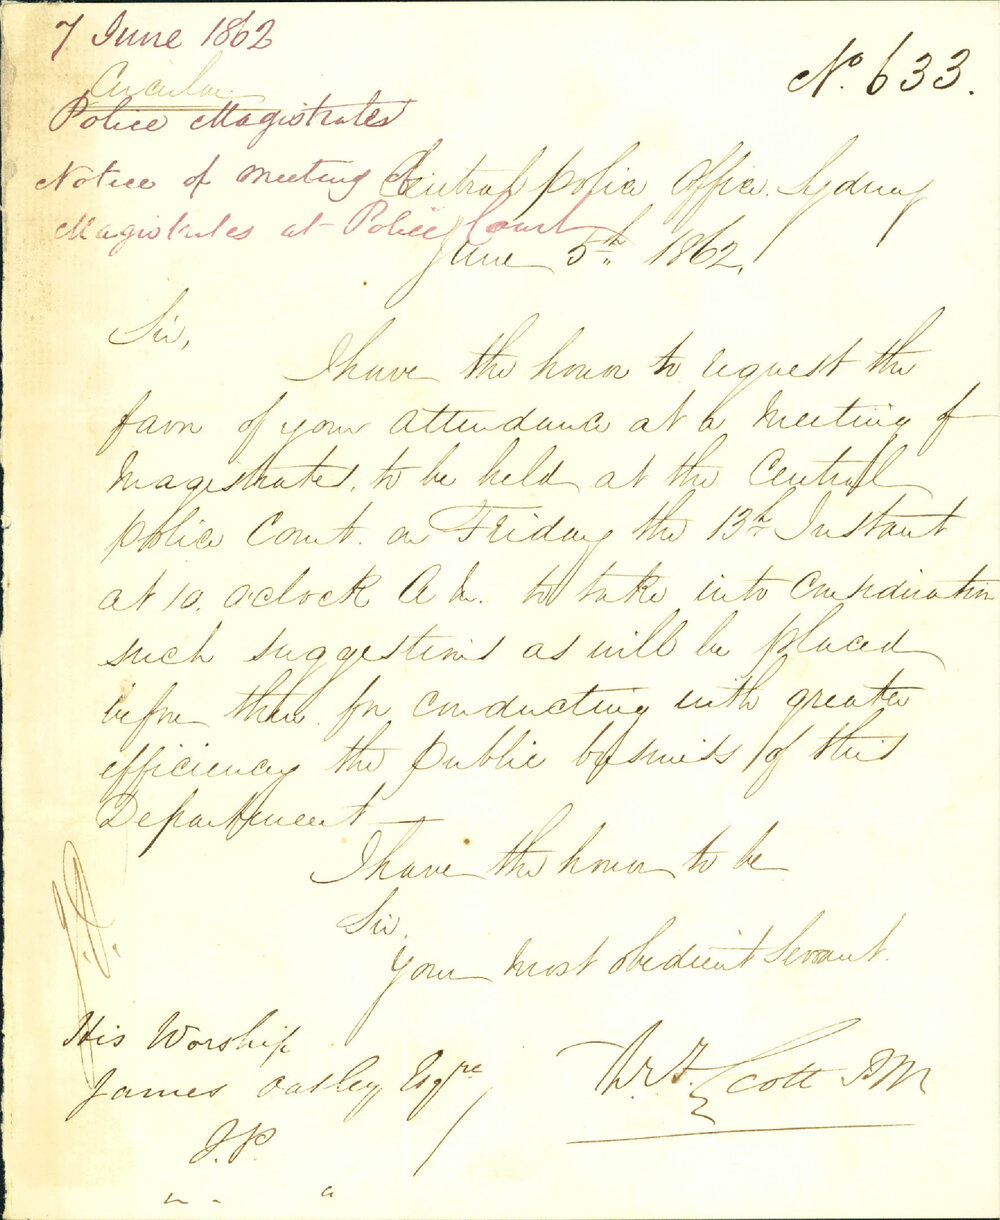 7 June 1862
No. 633.
Circular
Police Magistrates
Notice of meeting of
Magistrates at Police Court
Central Police Office. Sydney
June 5th 1862.
Sir,
I have the honor to request the
favor of your attendance at a Meeting of
Magistrates, to be held at the Central
Police Court. on Friday the 13th Instant
at 10. o'clock A M. to take into Consideration
such suggestions as will be placed
before them for conducting with greater
efficiency the public business of this
Department
I have the honor to be
Sir.
Your most obedient Servant.
His Worship
James Oatley Esqre
J.P.
Scott P.M